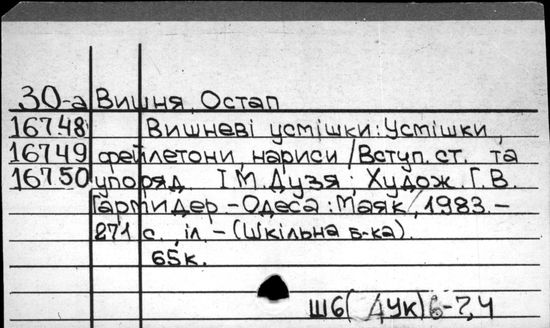 30-а Вишня, Остап
16748 Вишневі усмішки: Усмішки,
16749 фейлетони, нариси / Вступ. ст. та
16750 упоряд. І.М. Дузя; Худож. Г.В.
Гармидер. - Одеса: Маяк, 1983. -
271 с., іл. - (Шкільна б-ка).
65к.
Ш6(